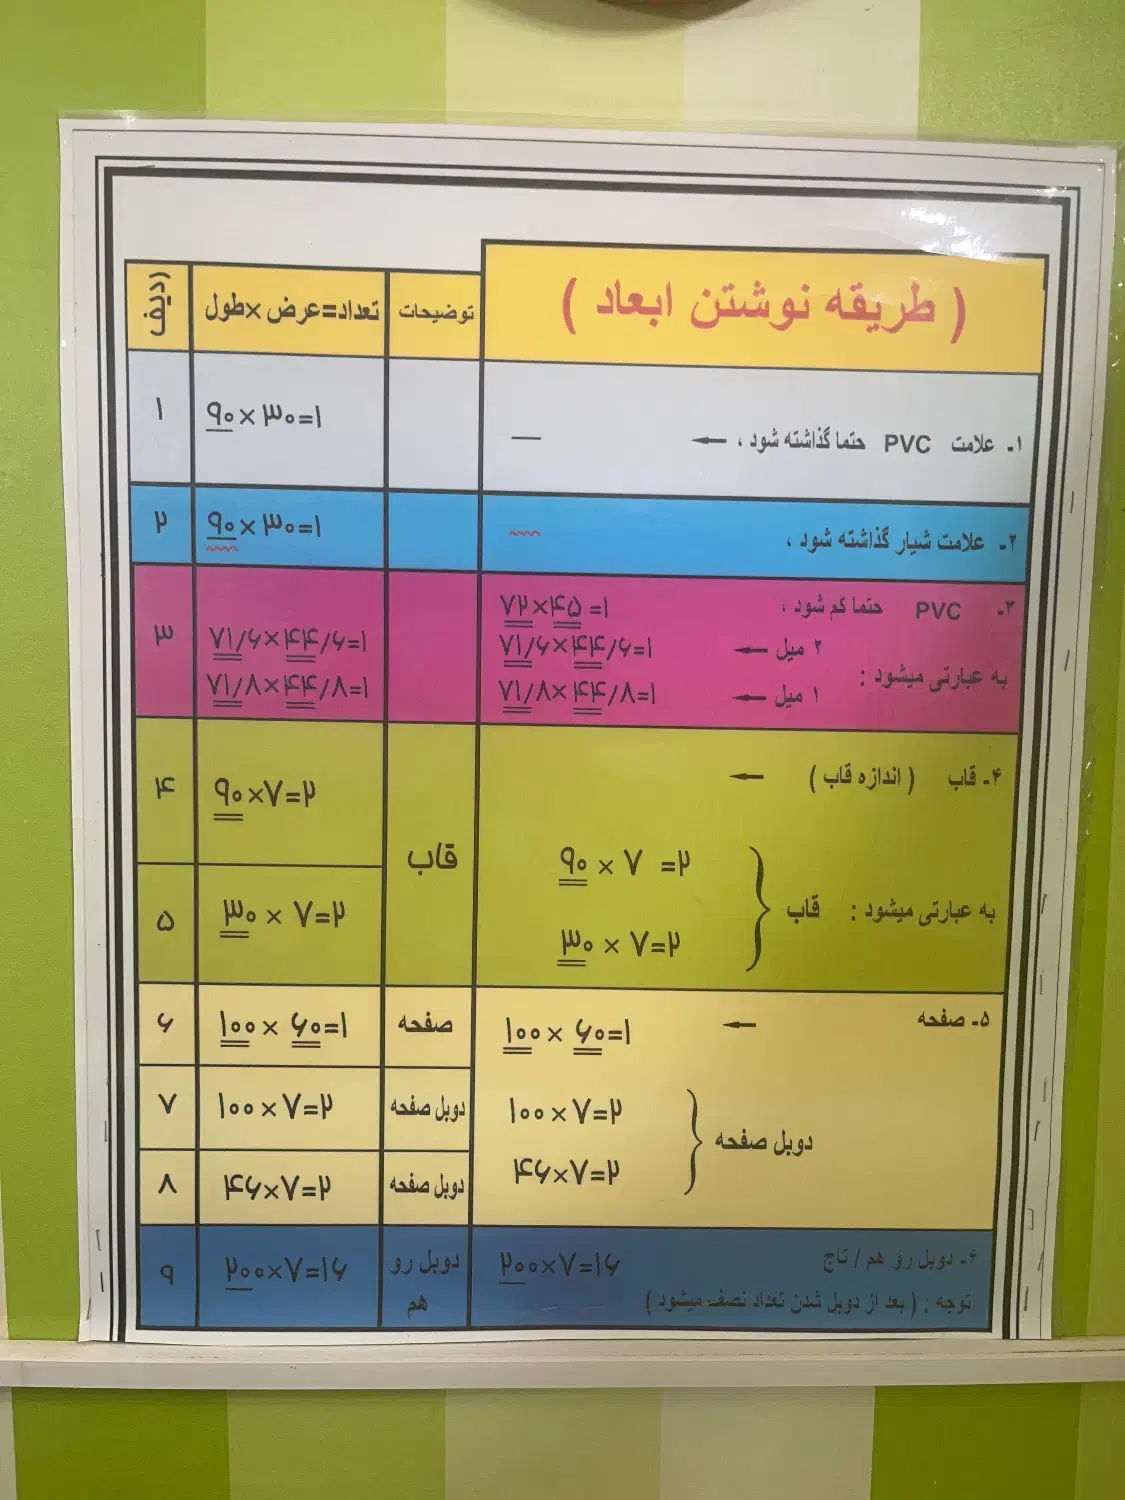 ( طریقه نوشتن ابعاد )
توضیحات
تعداد=عرض×طول
ردیف
۱ـ علامت PVC حتما گذاشته شود ، ← —
۹۰×۳۰=۱
۱
۲ـ علامت شیار گذاشته شود ،
۹۰×۳۰=۱
۲
۳ـ PVC حتما کم شود ،
۷۲×۴۵=۱
۲ میل ← ۷۱/۶×۴۴/۶=۱
به عبارتی میشود :
۱ میل ← ۷۱/۸×۴۴/۸=۱
۷۱/۶×۴۴/۶=۱
۷۱/۸×۴۴/۸=۱
۳
۴ـ قاب ( اندازه قاب ) ←
به عبارتی میشود : قاب
۹۰×۷=۲
۳۰×۷=۲
قاب
۹۰×۷=۲
۴
۳۰×۷=۲
۵
۵ـ صفحه ← ۱۰۰×۶۰=۱
صفحه
۱۰۰×۶۰=۱
۶
دوبل صفحه
۱۰۰×۷=۲
۴۶×۷=۲
دوبل صفحه
۱۰۰×۷=۲
۷
دوبل صفحه
۴۶×۷=۲
۸
۶ـ دوبل رو هم / تاج
۲۰۰×۷=۱۶
توجه : ( بعد از دوبل شدن تعداد نصف میشود )
دوبل رو
هم
۲۰۰×۷=۱۶
۹